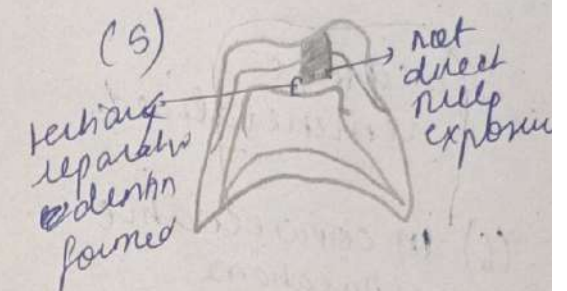 (5)
not
direct
pulp
exposure
tertiary
reparative
dentin
formed